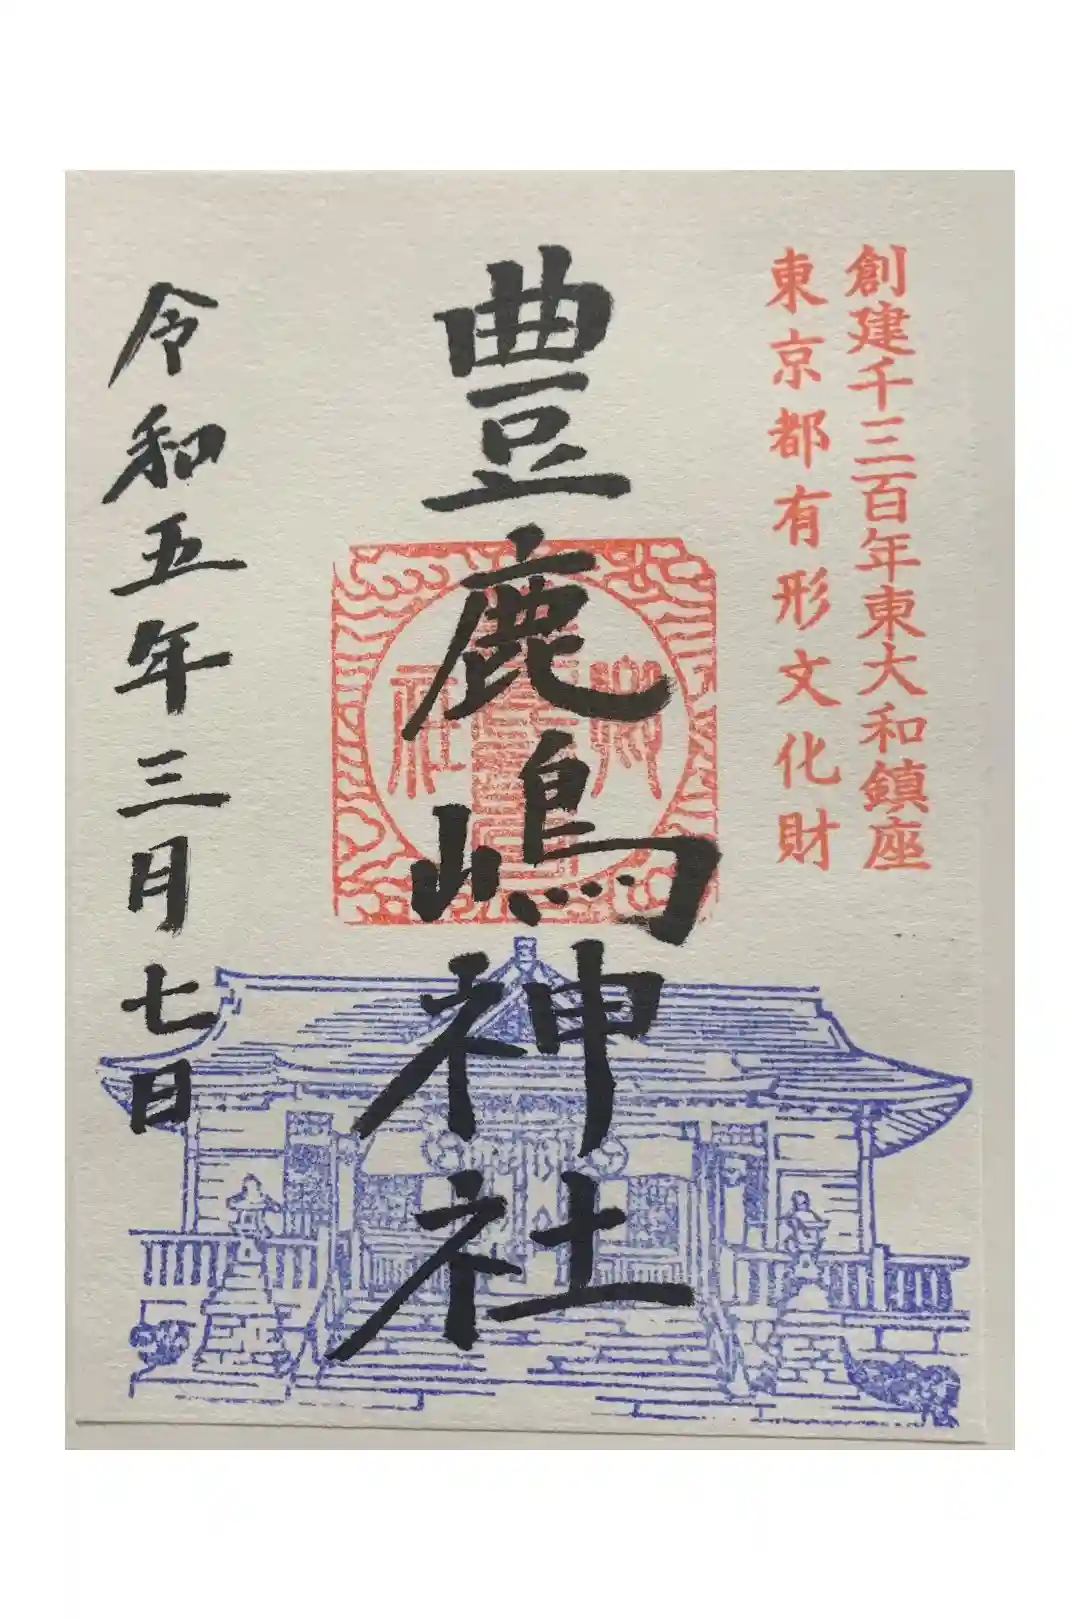 創建千三百年東大和鎮座
東京都有形文化財
豊鹿嶋神社
令和五年三月七日